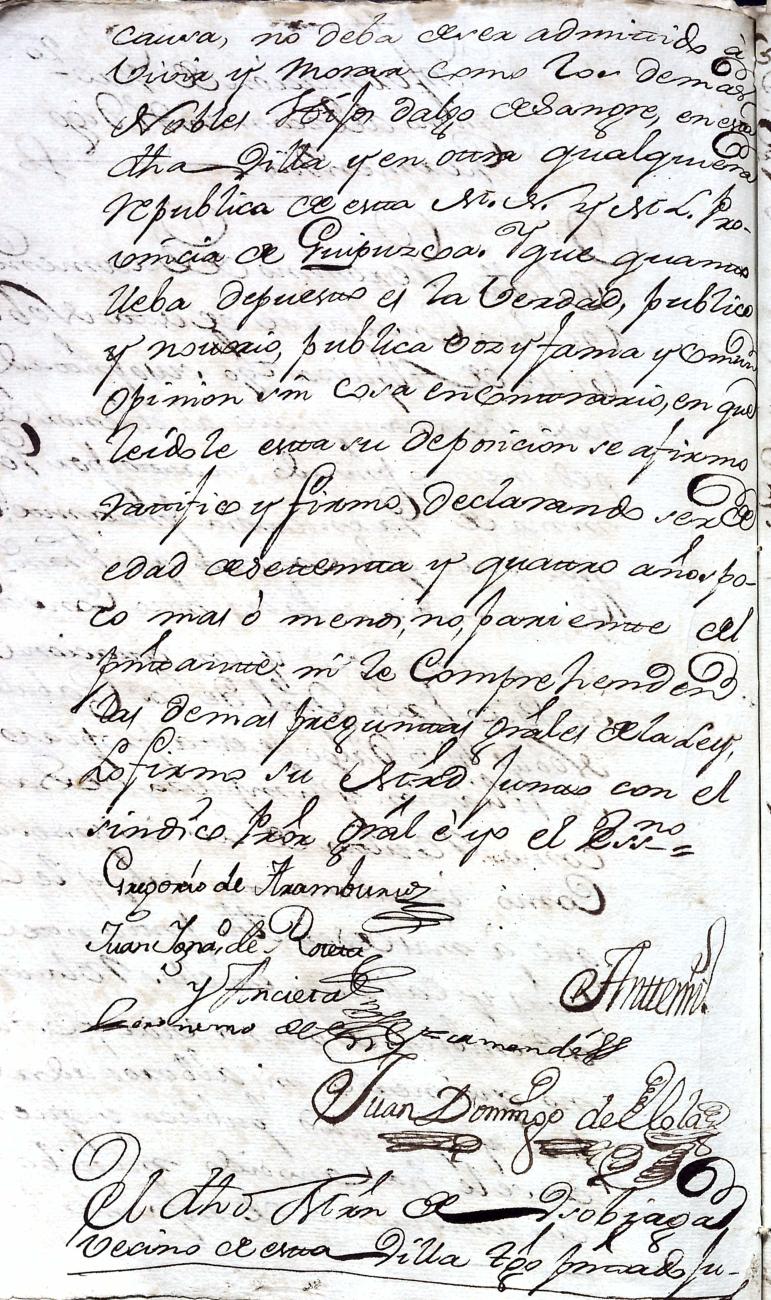 causa, no deba de ser admittido â
Vivir y Morar como los demas
Nobles Hijos dalgo de Sangre, en esta
dha Villa y en otra qualquiera
republica de esta M. N. y M. L. Pro-
vincia de Guipuzcoa. Y que quanto
lleba depuesto es la Verdad, publico
y notorio, publica voz y fama y Comun
opinion sin cosa en Contrario, en que
leidole esta su deposicion se afirmo
rattifico y firmo, declarando ser de
edad de settentta y quattro años, po-
co mas ô menos, no, pariente del
pnttante ni le Comprehenden
las demas preguntas grâles de la Ley,
Lo firmo su Mrd Junto con el
sindico Prôr Grâl ê yo el Essno
Gregorio de Aramburu
Juan Ignao. de
y Ancieta
Geronimo de
Anttemi
Juan Domingo de Elola
El dho. Mrn de
Vecino de esta Villa tgo pnttado Ju-